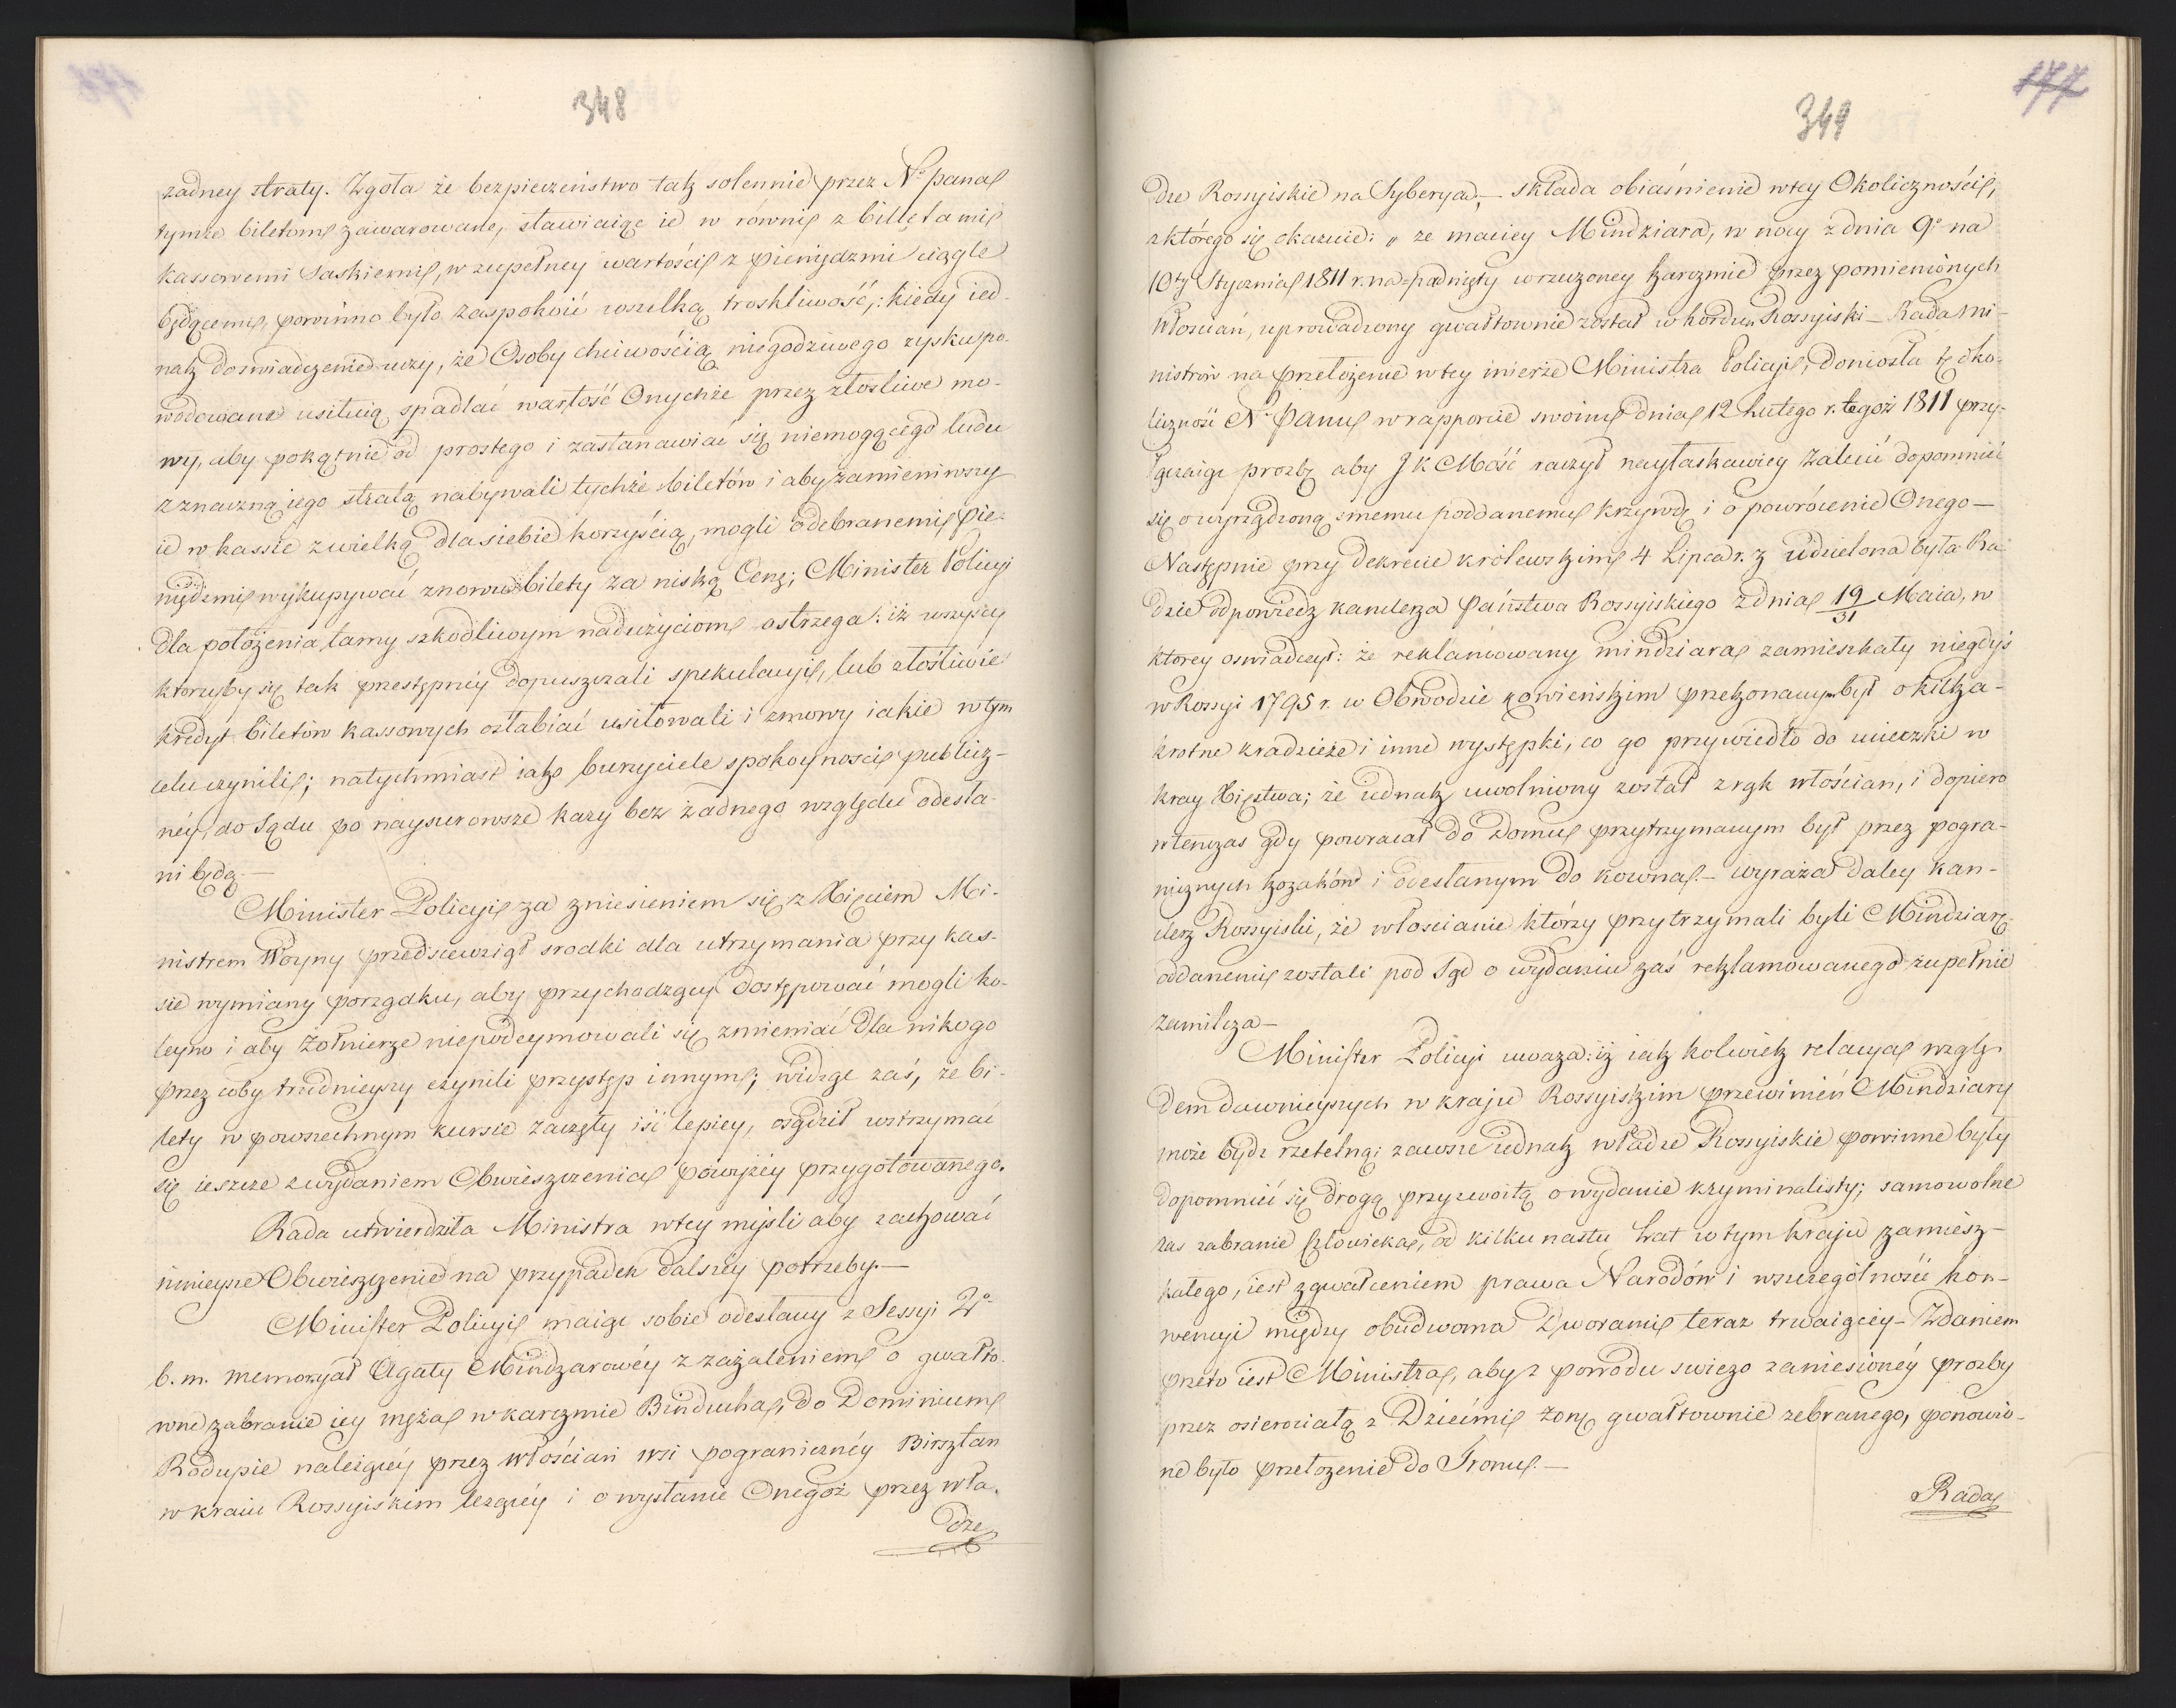 348
żadney straty. Zgoła że bezpieczeństwo tak solennie przez N° pana
tymże biletom zawarowane, stawiaiąc ie w równi z biletami
kassowemi Saskiemi, w zupełney wartości z pieniędzmi ciągle
będącemi, powinno było zaspokoić wszelką troskliwość; kiedy ied-
nak doswiadczenie uczy, że Osoby chciwością niegodziwego zysku po-
wodowane usiłuią spadlać wartość Onychże przez złośliwe mo-
wy, aby pokątnie od prostego i zastanawiać się niemogącego ludu
z znaczną jego stratą nabywali tychże biletów i aby zamieniwszy
ie w kassie z wielką dla siebie korzyścią, mogli odebranemi pie-
niędzmi wykupywać znowu bilety za niską Cenę; Minister Policyi
dla położenia tamy szkodliwym nadużyciom ostrzega: iż wszyscy
którzyby się tak przestępnéy dopuszczali spekulacyi, lub złośliwie
kredyt biletów kassowych osłabiać usiłowali i zmowy iakie w tym
celu czynili; natychmiast iako burzyciele spokoyności publicz-
néy, do Sądu po naysurowsze kary bez żadnego względu odesła-
ni będą.—
Minister Policyi za zniesieniem się z Xięciem Mi-
nistrem Woyny przedsięwziął srodki dla utrzymania przy kas-
sie wymiany porządku, aby przychodzący dostępować mogli ko-
leyno i aby Żołnierze niepodeymowali się zmieniać dla nikogo
przez coby trudnieyszy czynili przystęp innym; widząc zaś, że bi-
lety w powszechnym kursie zaczęły iść lepiey, osądził wstrzymać
się ieszcze z wydaniem Obwieszczenia powyżéy przygotowanego.
Rada utwierdziła Ministra w tey myśli aby zachować
ninieysze Obwieszczenie na przypadek dalszéy potrzeby.—
Minister Policyi maiąc sobie odesłany z Sessyi 2°
b. m. memoryał Agaty Mindzarowéy z zażaleniem o gwałto-
wne zabranie iey męża w karczmie Binducha, do Dominium
Rodupie należącéy przez włościan wsi pogranicznéy Birsztan
w kraiu Rossyiskim leżącéy i o wysłanie Onegoż przez wła-
dze
177
349
dze Rossyiskie na Syberya,— składa obiaśnienie w tey Okoliczności,
z którego się okazuie: „ że maciey Mindziara, w nocy z dnia 9° na
10ty Stycznia 1811 r. napadnięty w rzeczoney karczmie przez pomienionych
Włoscian, uprowadzony gwałtownie został w kordon Rossyiski— Rada Mi-
nistrów na przełożenie w tey mierze Ministra Policyi, doniosła tę oko-
liczność N° Panu w rapporcie swoim dnia 12 Lutego r. tegoż 1811 przy-
łączaiąc prozbę aby J K Mość raczył nayłaskawiey zalecić dopomnieć
się o wyrządzoną smemu poddanemu krzywdę i o powrócenie Onego—
Następnie przy dekrecie królewskim 4 Lipca r. z udzielona była Ra-
dzie odpowiedz kanclerza Państwa Rossyiskiego z dnia 19/31 Maia, w
którey oswiadczył: że reklamowany mindziara zamieszkały niegdyś
w Rossyi 1795 r. w Obwodzie kowieńskim przekonanym był o kilka-
krotne kradzieże i inne występki, co go przywiodło do ucieczki w
kray Xięstwa; że iednak uwolniony został z rąk włościan, i dopiero
wtenczas gdy powracał do Domu przytrzymanym był przez pogra-
nicznych kozaków i odesłanym do kowna.— wyraża daley kan-
clerz Rossyiski, że włoscianie którzy przytrzymali byli Mindziarę
oddanemi zostali pod Sąd o wydaniu zaś reklamowanego zupełnie
zamilcza—
Minister Policyi uważa: iż iak kolwiek relacya wzglę-
dem dawnieyszych w kraju Rossyiskim przewinień Mindziary
może bydź rzetelną; zawsze iednak władze Rossyiskie powinne były
dopomnieć się drogą przyzwoitą o wydanie kryminalisty; samowolne
zas zabranie Człowieka, od kilku nastu Lat w tym kraju zamiesz-
kałego, iest zgwałceniem prawa Narodów i wszczególności kon-
wencyi między obudwoma Dworami teraz trwaiącéy— Zdaniem
przeto iest Ministra, aby z powodu swiezo zaniesionéy prozby
przez osierociałą z Dziećmi żonę gwałtownie zebranego, ponowio-
ne było przełożenie do Tronu.—
Rada